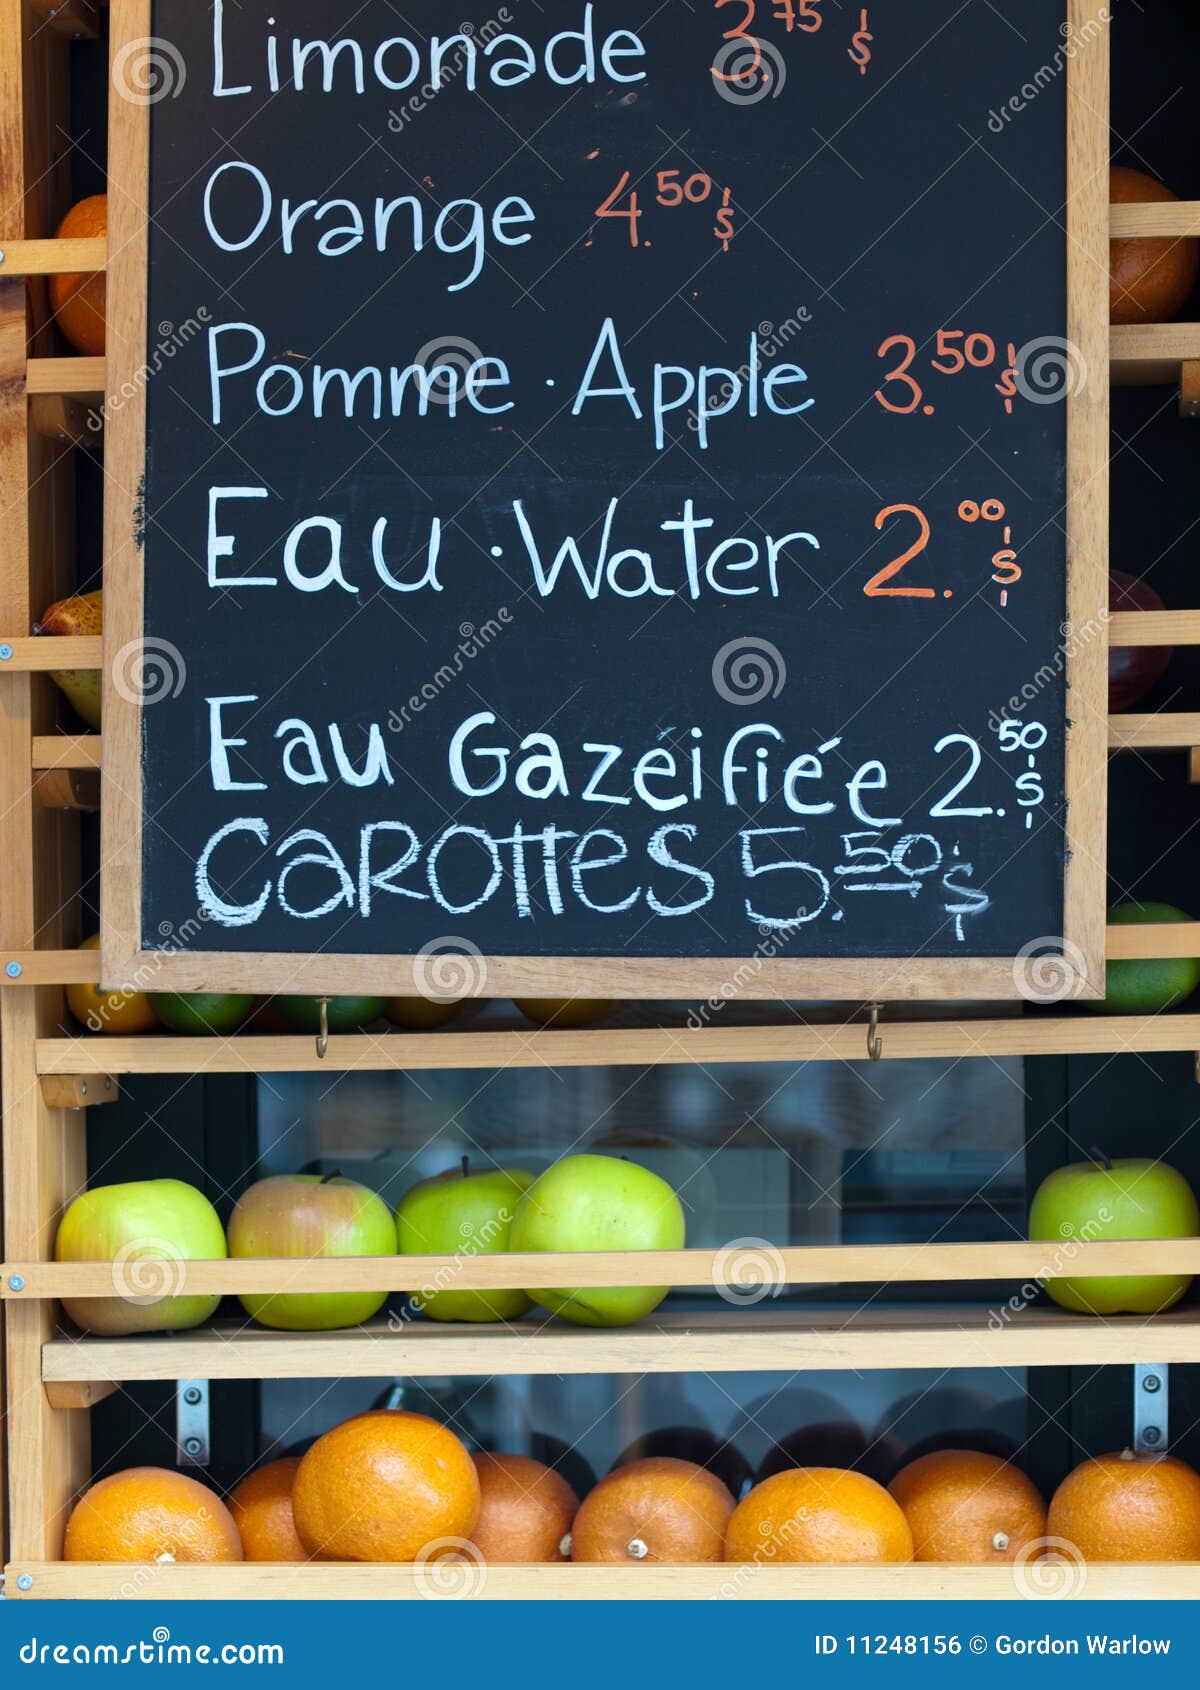 Limonade 3.75 $
Orange 4.50 $
Pomme · Apple 3.50 $
Eau · Water 2.00 $
Eau Gazéifiée 2.50 $
CAROTTES 5.50 $
dreamstime.com
ID 11248156 © Gordon Warlow